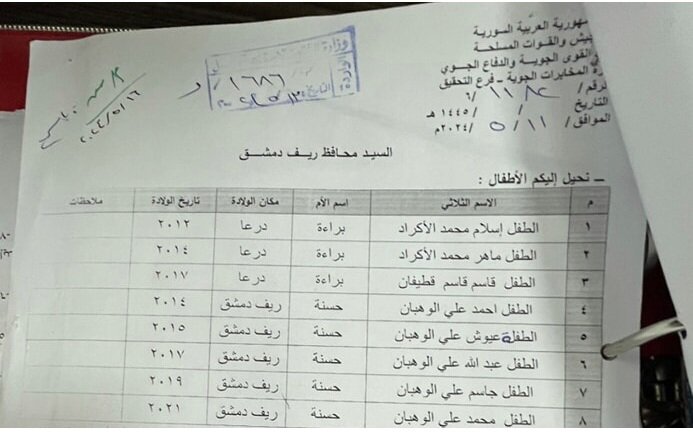 جمهورية العربية السورية
الجيش والقوات المسلحة
القوى الجوية والدفاع الجوي
المخابرات الجوية - فرع التحقيق
لرقم /
التاريخ / / ١٤٤٥هـ
الموافق ١١/ ٥ /٢٠٢٤م
وزارة
الواردة
١٦٨٦
التاريخ
٢٠٢٤/٥/١٦
السيد محافظ ريف دمشق
ــ نحيل إليكم الأطفال :
م الاسم الثلاثي اسم الأم مكان الولادة تاريخ الولادة ملاحظات
١ الطفل إسلام محمد الأكراد براءة درعا ٢٠١٢
٢ الطفل ماهر محمد الأكراد براءة درعا ٢٠١٤
٣ الطفل قاسم قاسم قطيفان براءة درعا ٢٠١٧
٤ الطفل احمد علي الوهبان حسنة ريف دمشق ٢٠١٤
٥ الطفلة عيوش علي الوهبان حسنة ريف دمشق ٢٠١٥
٦ الطفل عبد الله علي الوهبان حسنة ريف دمشق ٢٠١٧
٧ الطفل جاسم علي الوهبان حسنة ريف دمشق ٢٠١٩
٨ الطفل محمد علي الوهبان حسنة ريف دمشق ٢٠٢١